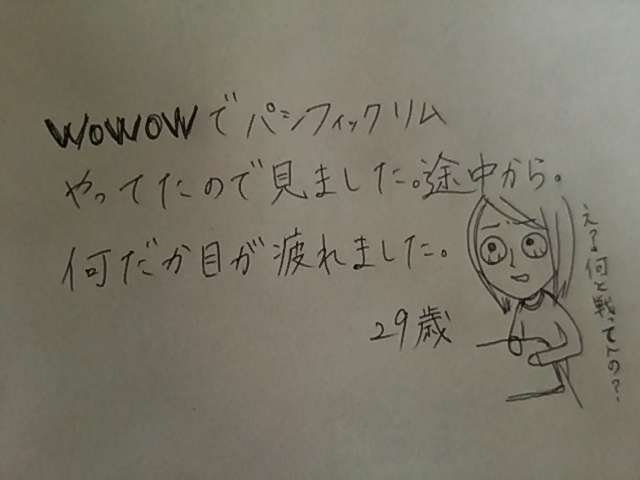 WOWOWでパシフィックリム
やってたので見ました。途中から。
何だか目が疲れました。
29歳
え?何と戦ってんの?